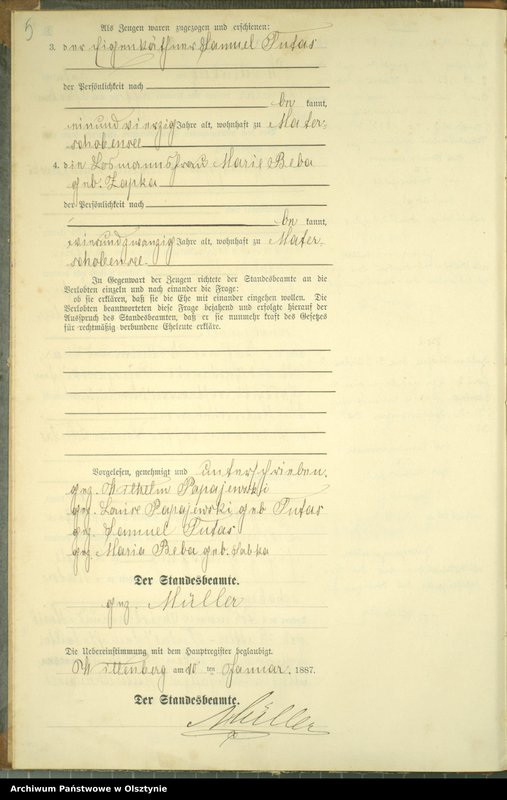 5
Als Zeugen waren zugezogen und erschienen:
3. der Eigenkäthner Samuel Tutas
der Persönlichkeit nach
be kannt,
einundvierzig Jahre alt, wohnhaft zu Mater-
schobensee
4. die Losmannsfrau Marie Beba
geb. Zapka
der Persönlichkeit nach
be kannt,
vierundzwanzig Jahre alt, wohnhaft zu Mater-
schobensee.
In Gegenwart der Zeugen richtete der Standesbeamte an die
Verlobten einzeln und nach einander die Frage:
ob sie erklären, daß sie die Ehe mit einander eingehen wollen. Die
Verlobten beantworteten diese Frage bejahend und erfolgte hierauf der
Ausspruch des Standesbeamten, daß er sie nunmehr kraft des Gesetzes
für rechtmäßig verbundene Eheleute erkläre.
Vorgelesen, genehmigt und unterschrieben.
gez. Wilhelm Papajewski
gez. Louise Papajewski geb Tutas
gez. Samuel Tutas
gez. Maria Beba geb.
Der Standesbeamte.
gez. Müller
Die Uebereinstimmung mit dem Hauptregister beglaubigt.
am 10 ten Januar. 1887.
Der Standesbeamte.
Müller
Archiwum Państwowe w Olsztynie